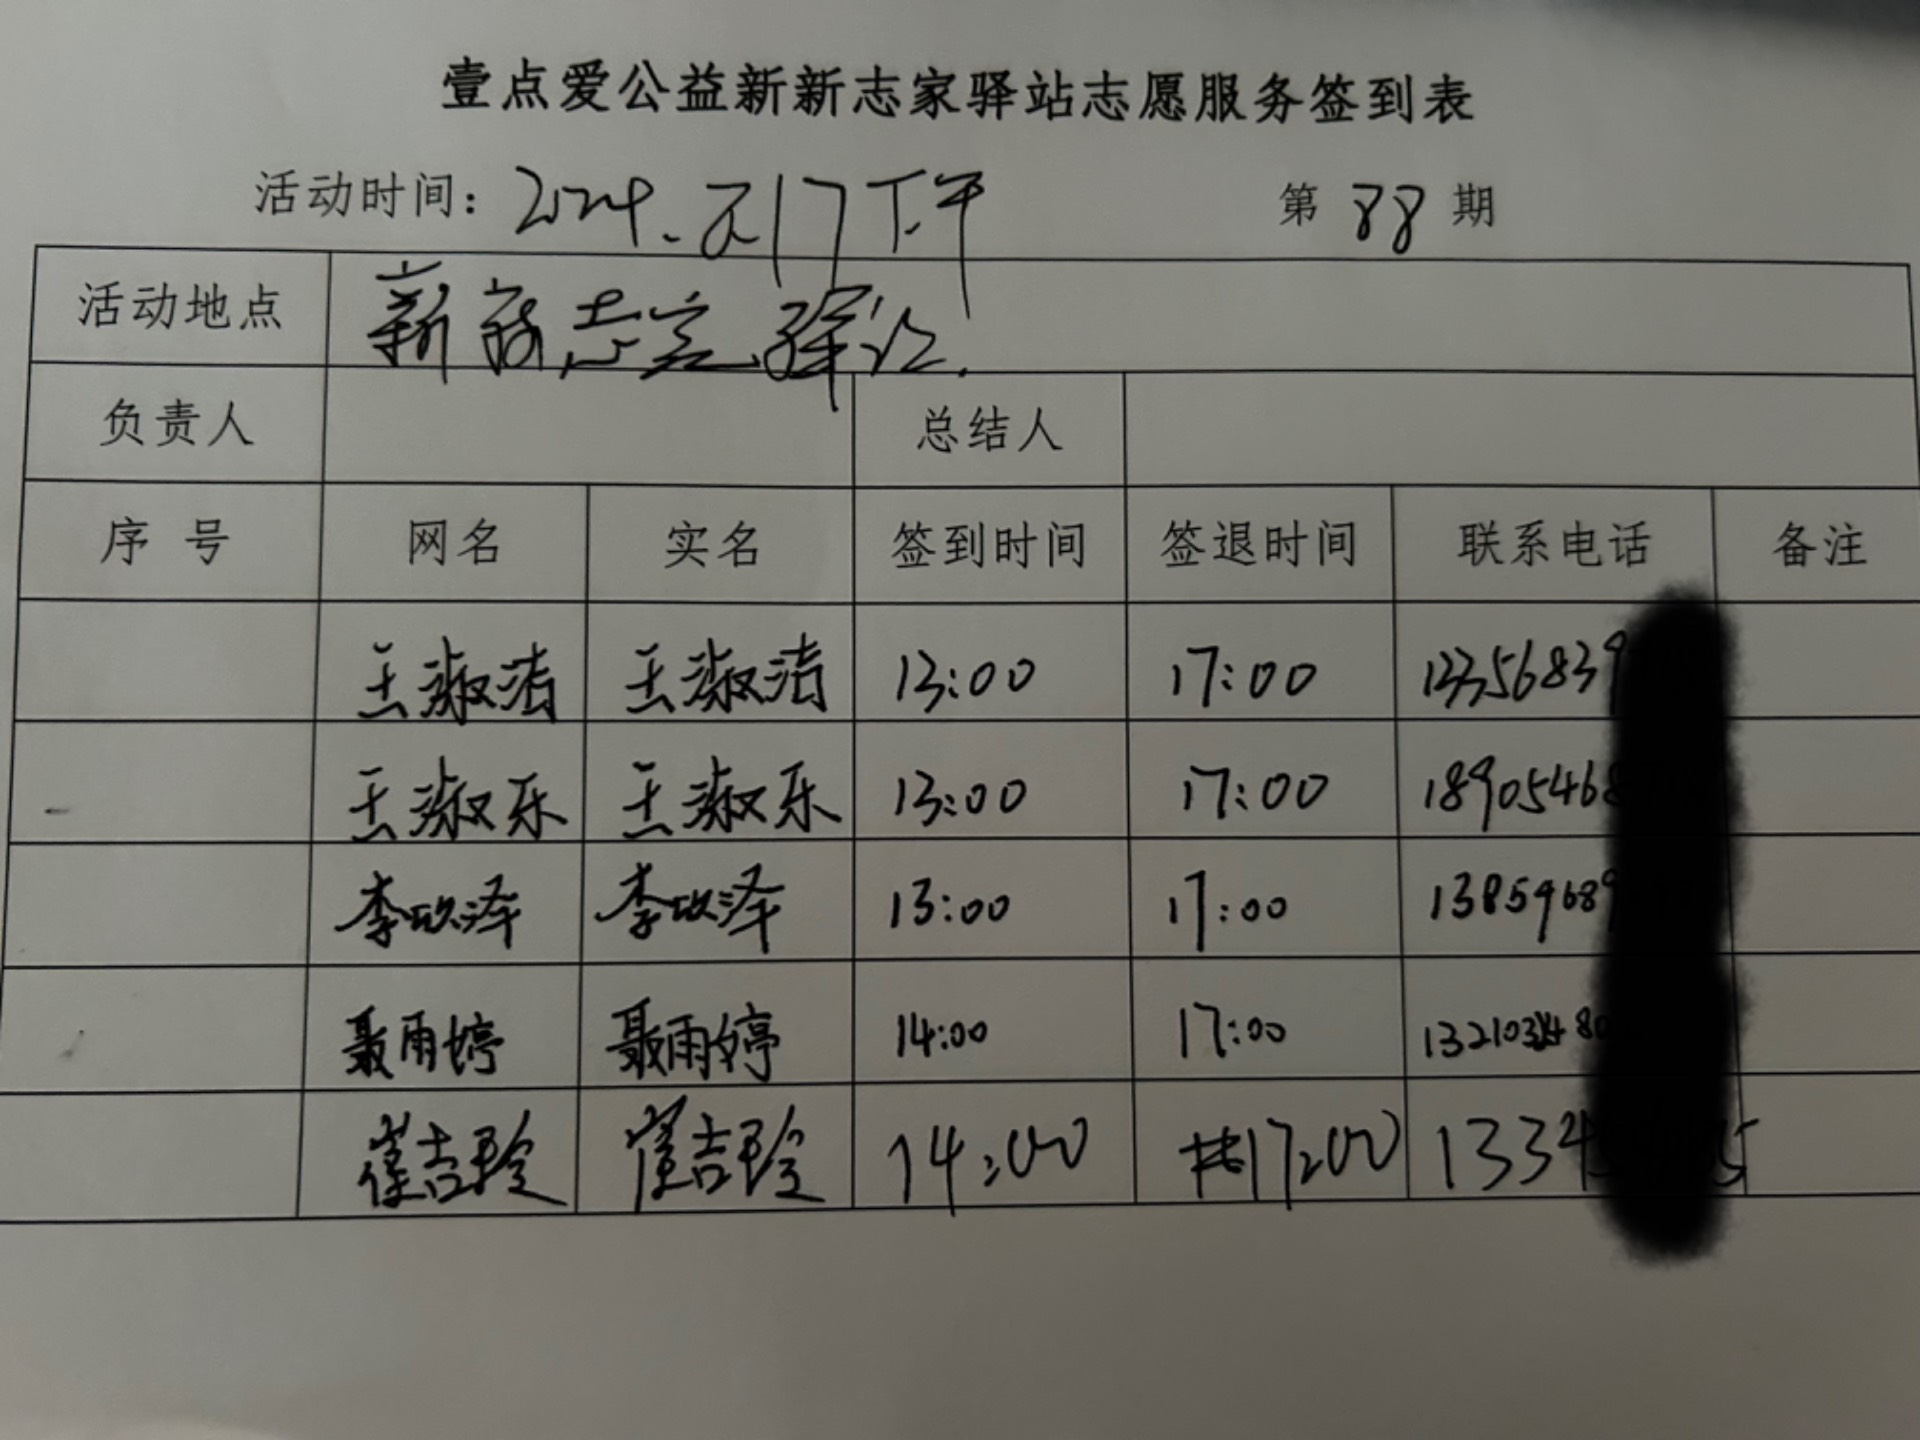 壹点爱公益新新志家驿站志愿服务签到表
活动时间：2024.8.17下午 第88期
活动地点 新新志家驿站.
负责人 总结人
序号 网名 实名 签到时间 签退时间 联系电话 备注
王淑洁 王淑洁 13:00 17:00 13356839
王淑乐 王淑乐 13:00 17:00 18905468
李玖泽 李玖泽 13:00 17:00 13859689
聂雨婷 聂雨婷 14:00 17:00
崔吉玲 崔吉玲 14:00 17:00 1334